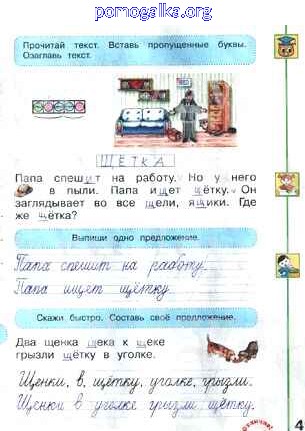 pomogalka.org
Прочитай текст. Вставь пропущенные буквы.
Озаглавь текст.
ЩЁТКА
Папа спешит на работу. Но у него
в пыли. Папа ищет щётку. Он
заглядывает во все щели, ящики. Где
же щётка?
Выпиши одно предложение.
Папа спешит на работу.
Папа ищет щётку.
Скажи быстро. Составь своё предложение.
Два щенка щека к щеке
грызли щётку в уголке.
Щенки, в, щётку, уголке, грызли.
Щенки в уголке грызли щётку.
4